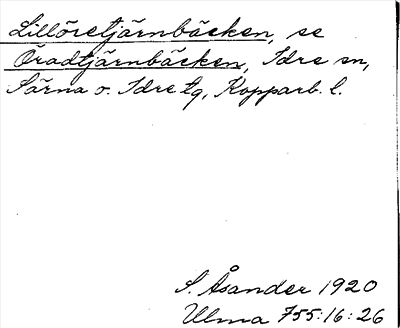 Lillöretjärnbäcken, se
Öradtjärnbäcken, Idre sn,
Särna o. Idre tg, Kopparb. l.
S. Åsander 1920
Ulma 755:16:26